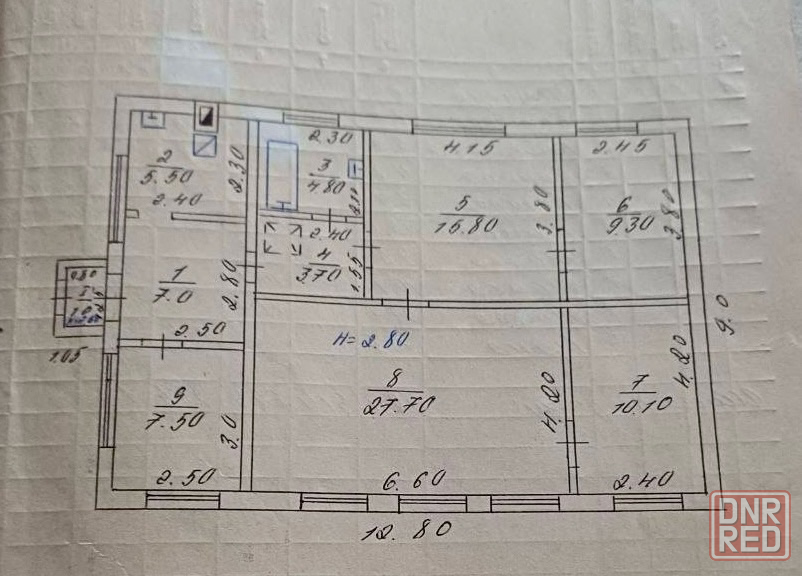 2
5.50
2.40
2.30
2.30
3
4.80
2.40
4
3.70
1.55
4.15
5
15.80
3.80
2.45
6
9.30
3.80
0.80
1
7.0
2.80
2.50
1.05
H=2.80
8
27.70
4.20
6.60
7
10.10
4.20
2.40
9.0
9
7.50
3.0
2.50
12.80
DNR
RED